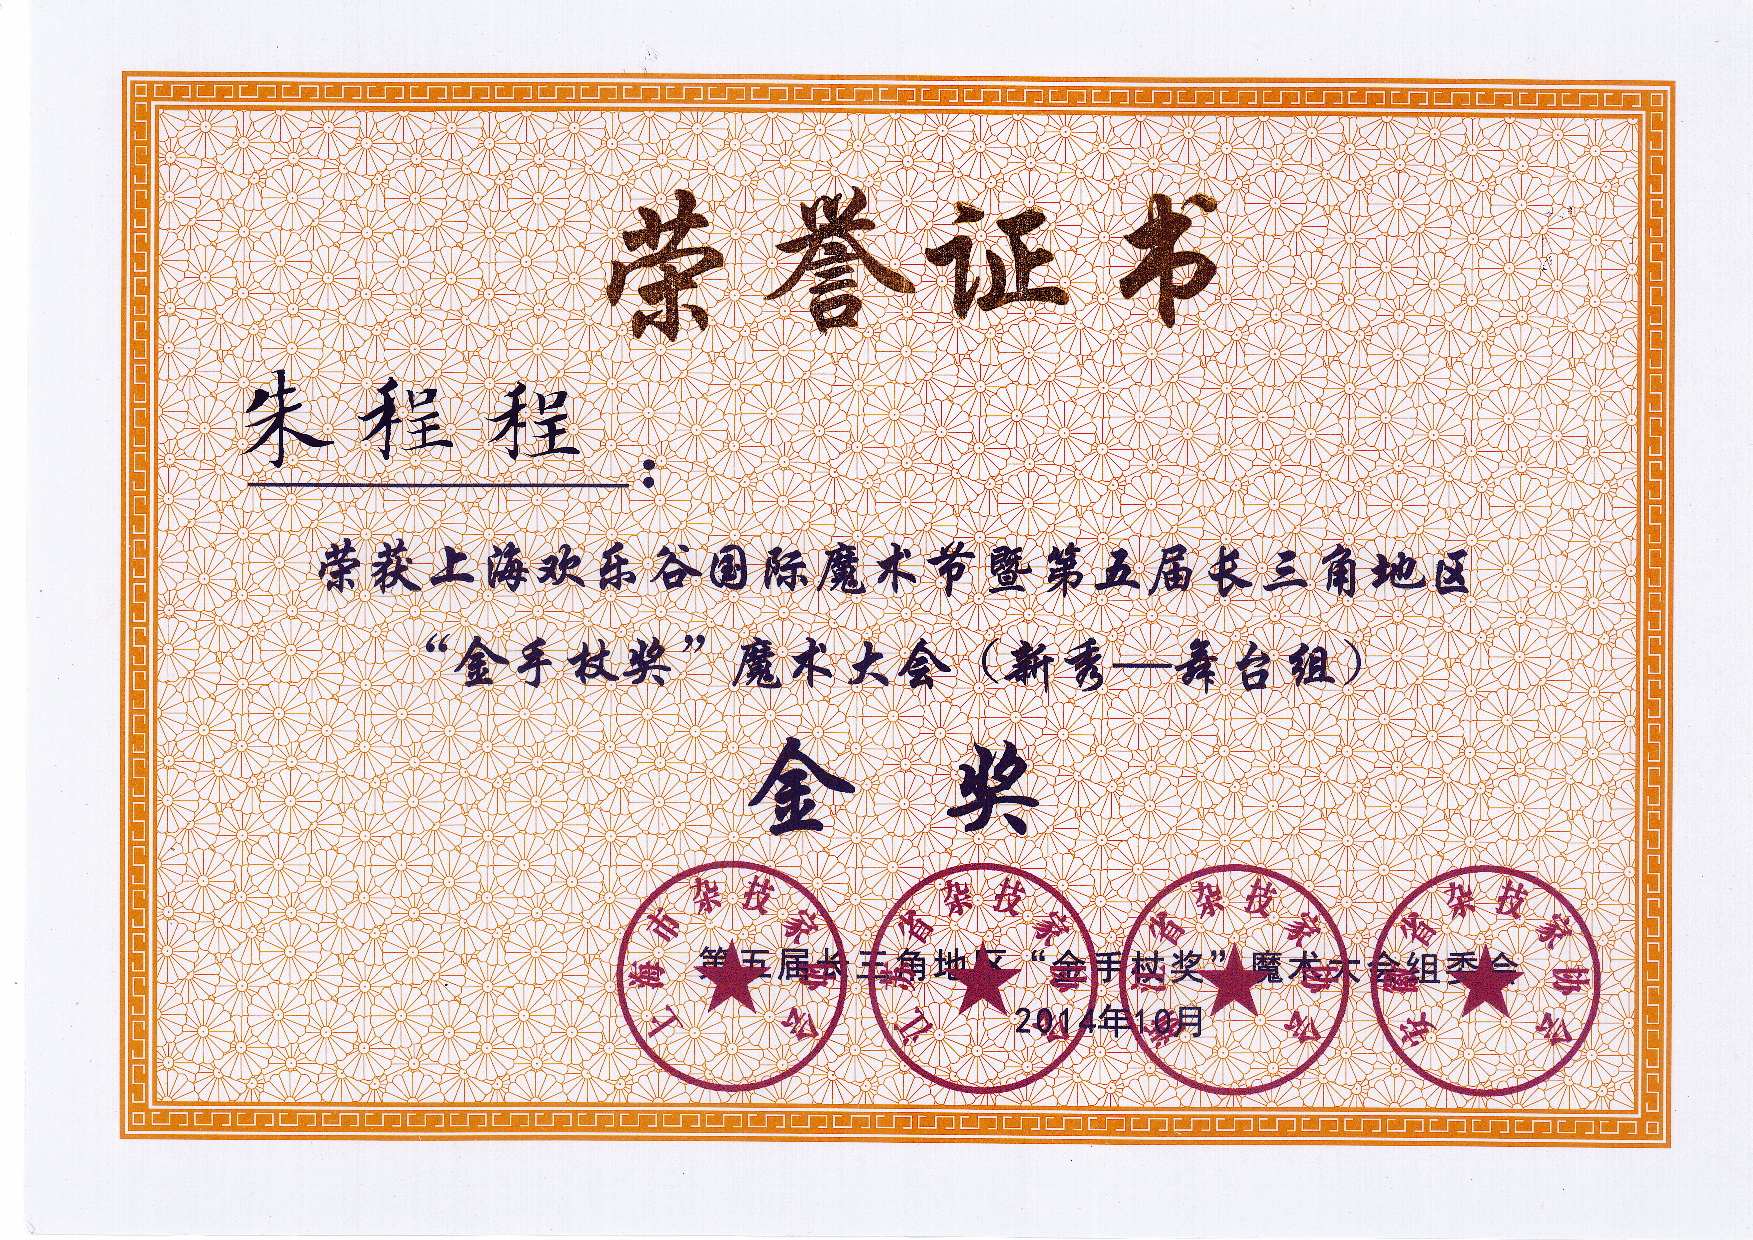 荣誉证书
朱程程：
荣获上海欢乐谷国际魔术节暨第五届长三角地区
“金手杖奖”魔术大会（新秀—舞台组）
金奖
第五届长三角地区“金手杖奖”魔术大会组委会
2014年10月
上海市杂技家协会
江苏省杂技家协会
浙江省杂技家协会
安徽省杂技家协会